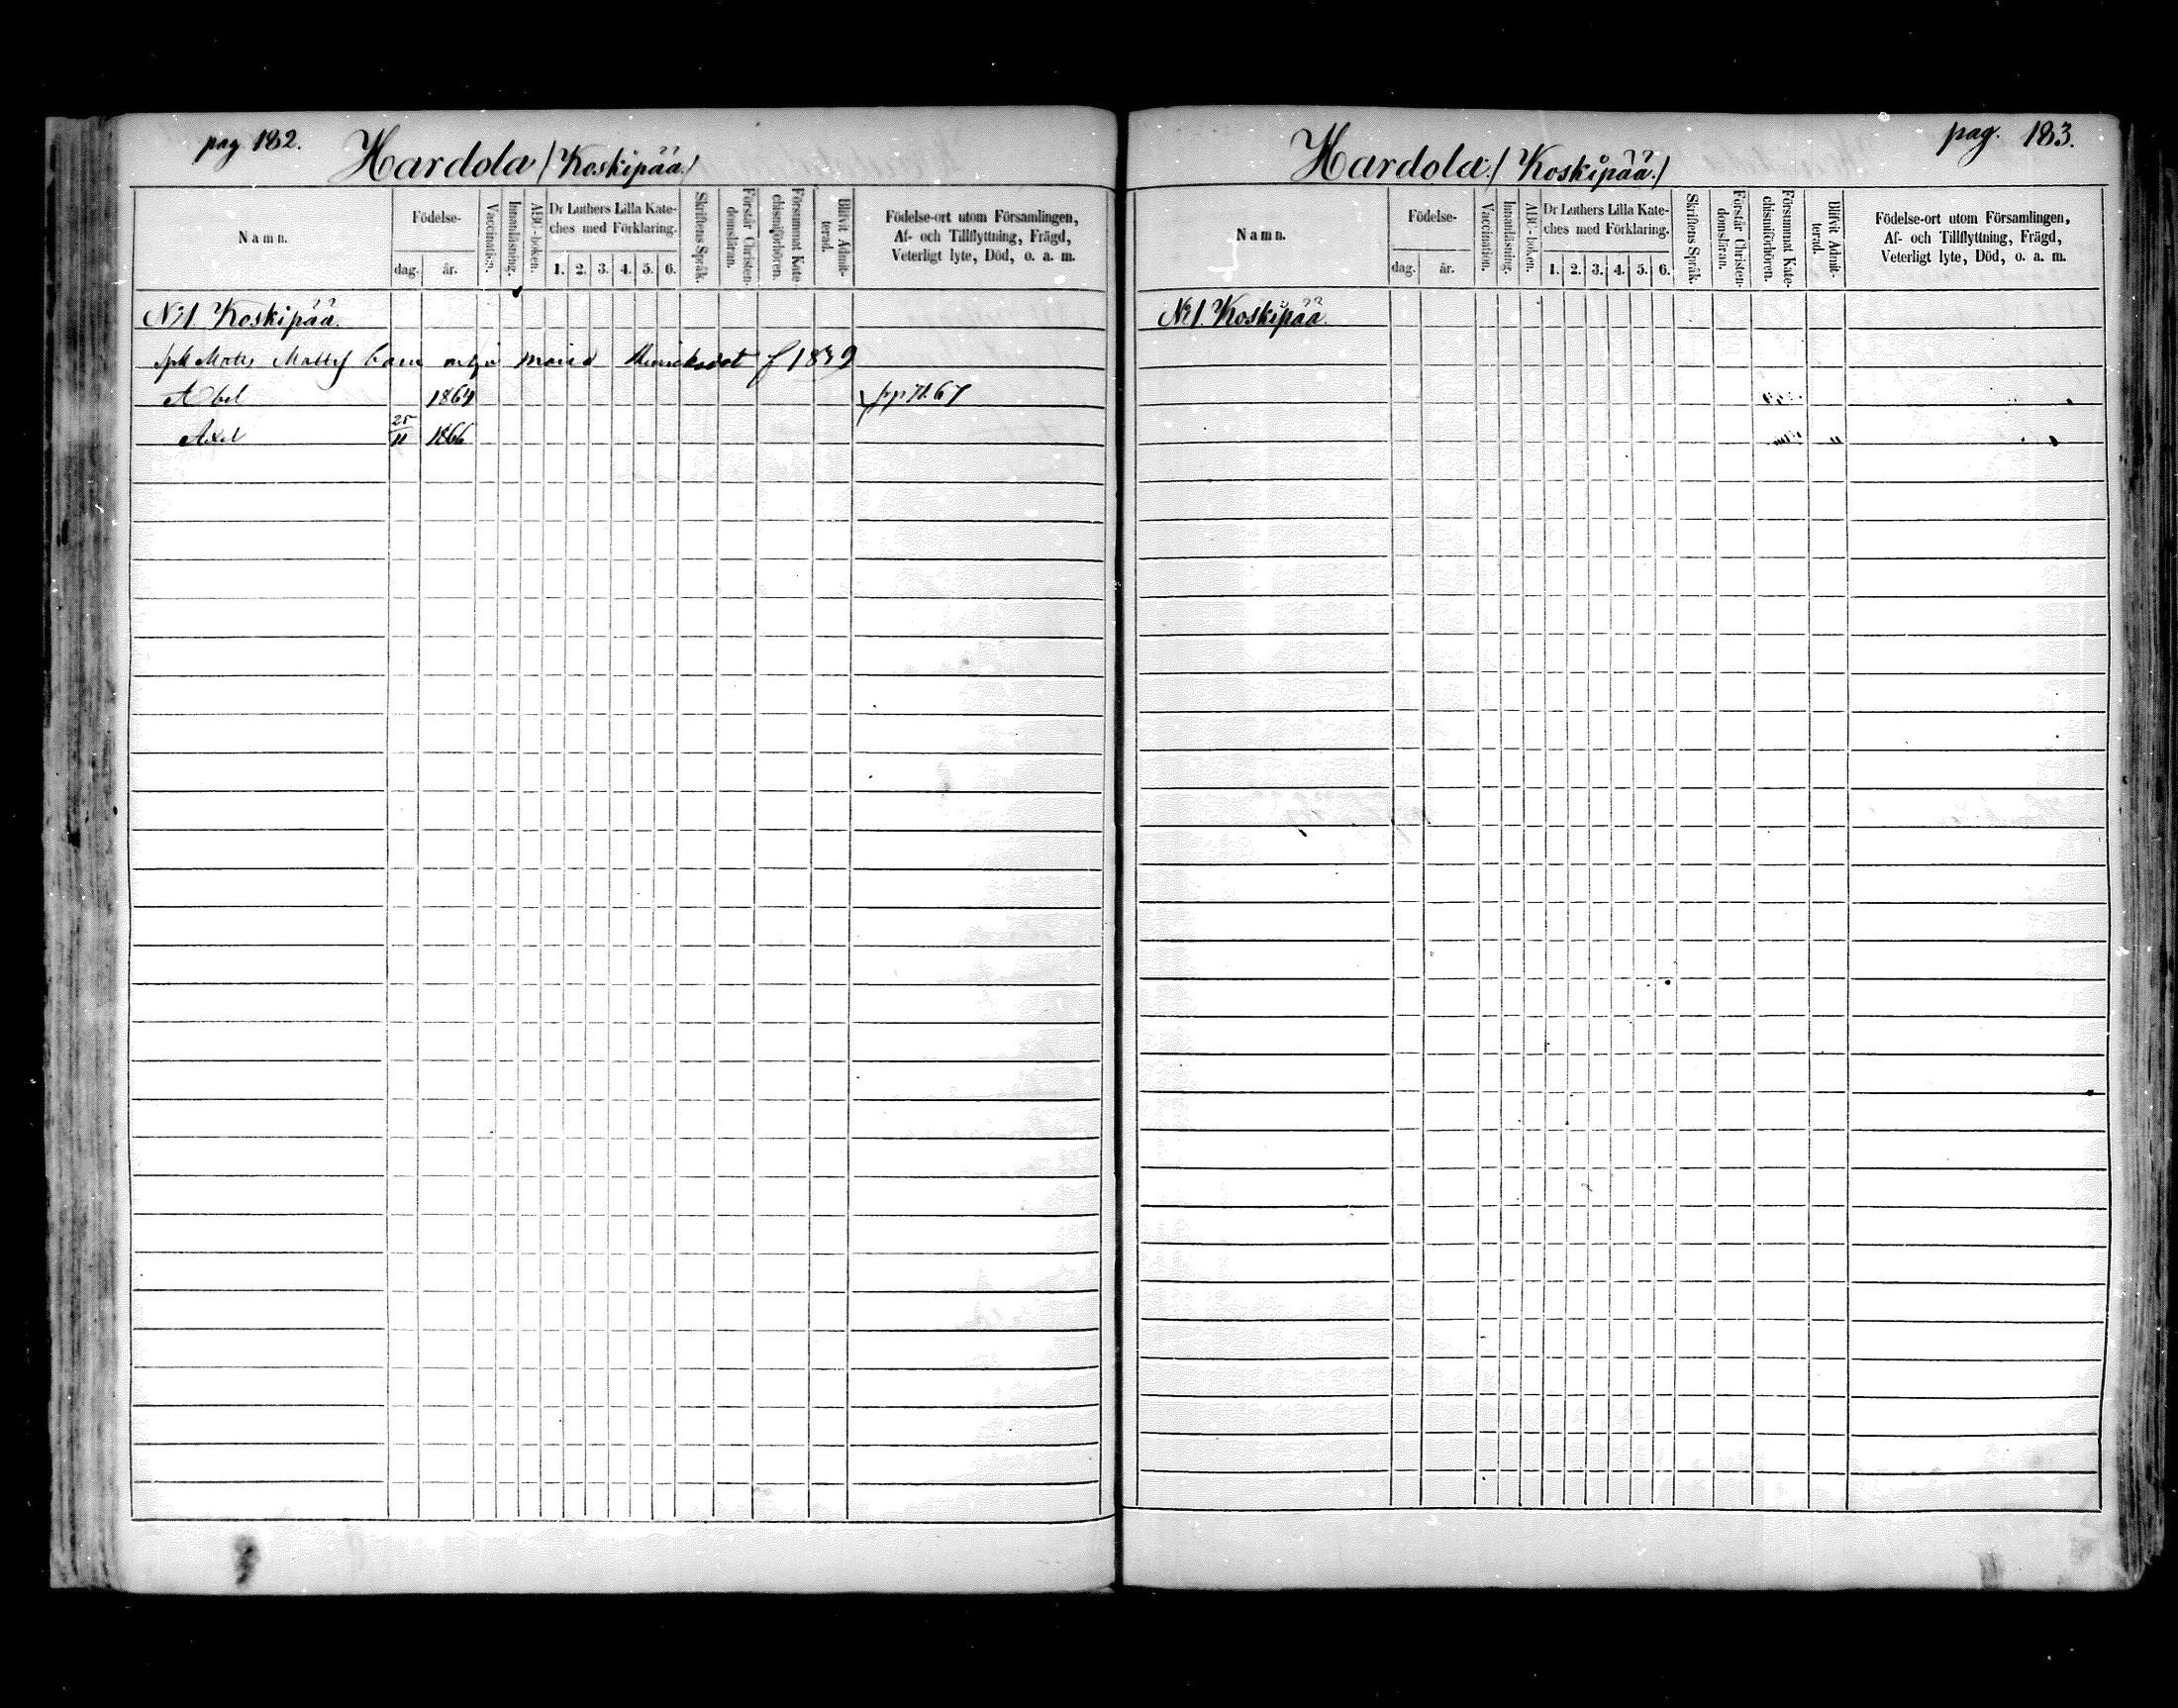 pag 182.
Hardola /Koskipää./
Namn.
Födelse-
dag. år.
Vaccination.
Innanläsning.
ABC-boken.
Dr Luthers Lilla Kate-
ches med Förklaring.
1. 2. 3. 4. 5. 6.
Skriftens Språk.
Förstår Christen-
domsläran.
Försummat Kate-
chismiförhören.
Blifvit Admit-
terad.
Födelse-ort utom Församlingen,
Af- och Tillflyttning, Frägd,
Veterligt lyte, Död, o. a. m.
N:1. Koskipää.
Matts Matts barn Maria Henricksdot f 1839
Abel 1864
Axel 25/11 1866
pag. 183.
Hardola./ Koskipää./
Namn.
Födelse-
dag. år.
Vaccination.
Innanläsning.
ABC-boken.
Dr Luthers Lilla Kate-
ches med Förklaring.
1. 2. 3. 4. 5. 6.
Skriftens Språk.
Förstår Christen-
domsläran.
Försummat Kate-
chismiförhören.
Blifvit Admit-
terad.
Födelse-ort utom Församlingen,
Af- och Tillflyttning, Frägd,
Veterligt lyte, Död, o. a. m.
N:1. Koskipää.